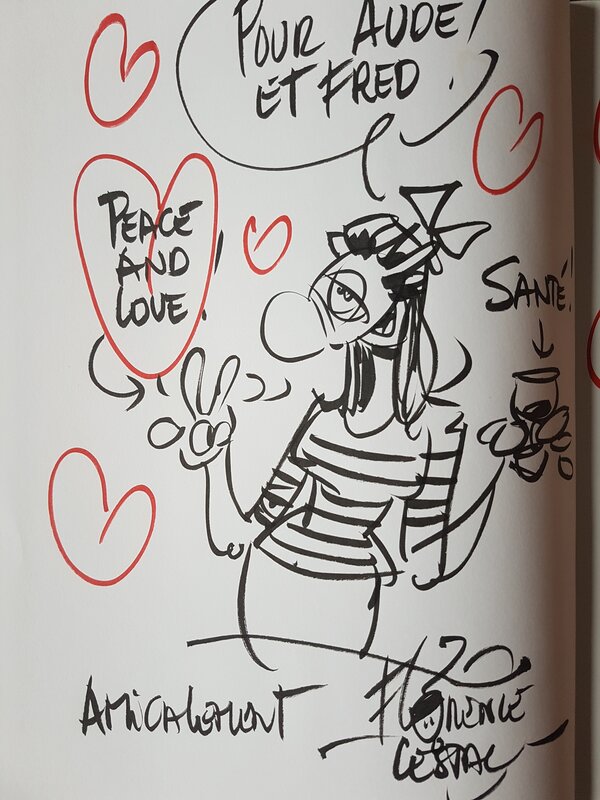 POUR AUDE!
ET FRED.
PEACE
AND
LOVE!
SANTÉ!
AMICALEMENT
FLORENCE
CESTAC